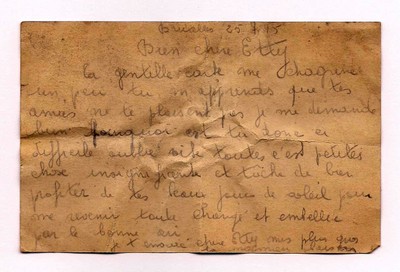 Bien chère Etty
ta gentille carte me chagrine
un peu tu m apprends que tes
amies ne te plaisent pas je me demande
bien pourquoi est tu donc si
difficile oublie si toutes c'est petites
chose insignifiante et tâche de bien
profiter de tes beau jours de soleil pour
me revenir toute changé et embellie
par le bonne air
je t envoie chère Etty mes plus